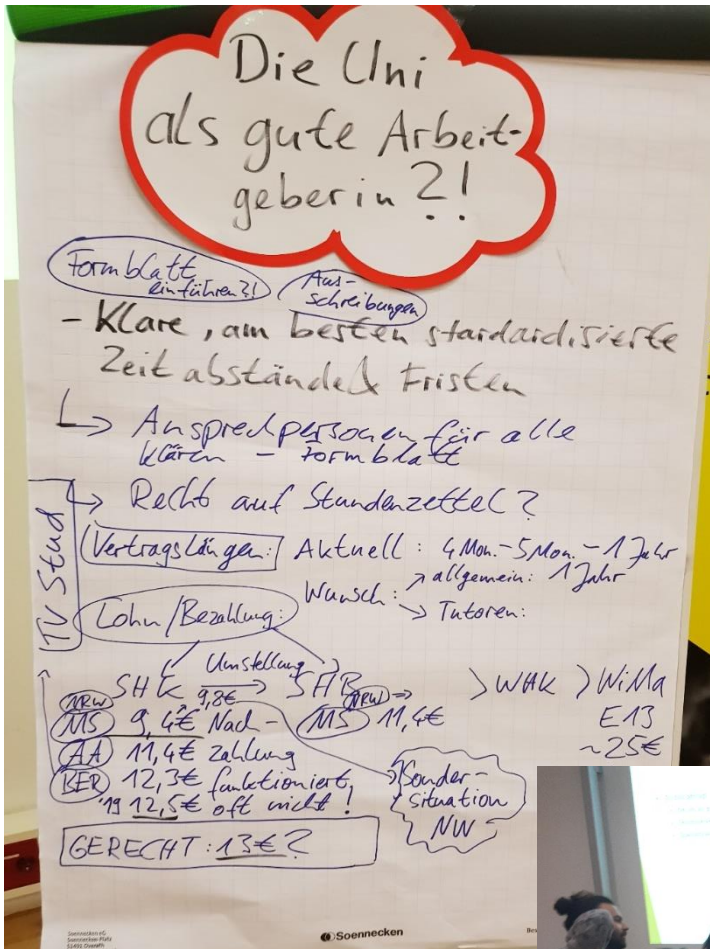 Die Uni
als gute Arbeit-
geberin ?!
Formblatt
einführen?!
Aus-
schreibungen
- Klare, am besten standardisierte
Zeitabstände & Fristen
→ Ansprechpersonen für alle
klären - Formblatt
→ Recht auf Stundenzettel?
TV Stud
Vertragslängen:
Aktuell: 4 Mon.-5 Mon.-1 Jahr
Wunsch: ↗ allgemein: 1 Jahr
→ Tutoren:
Lohn/Bezahlung:
Umstellung
SHK 9,8€ → SHB > WHK > WiMa
NRW
MS 9,4€ Nach-
NRW →
MS 11,4€
E13
~25€
AA 11,4€ zahlung
BER 12,3€ funktioniert,
'19 12,5€ oft nicht!
Sonder-
situation
NW
GERECHT: 13€?
Soennecken eG
Soennecken-Platz
51491 Overath
Soennecken
Bes